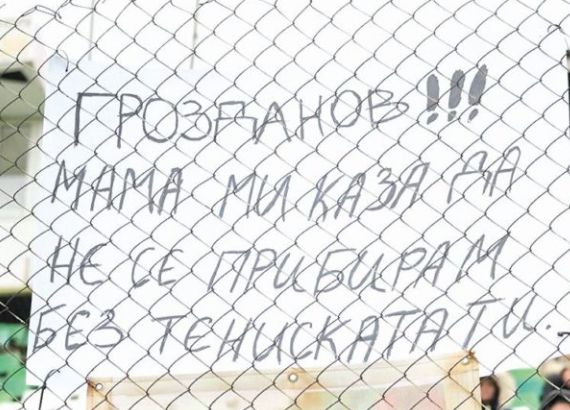 ГРОЗДАНОВ!!!
МАМА МИ КАЗА ДА
НЕ СЕ ПРИБИРАМ
БЕЗ ТЕНИСКАТА ТИ..